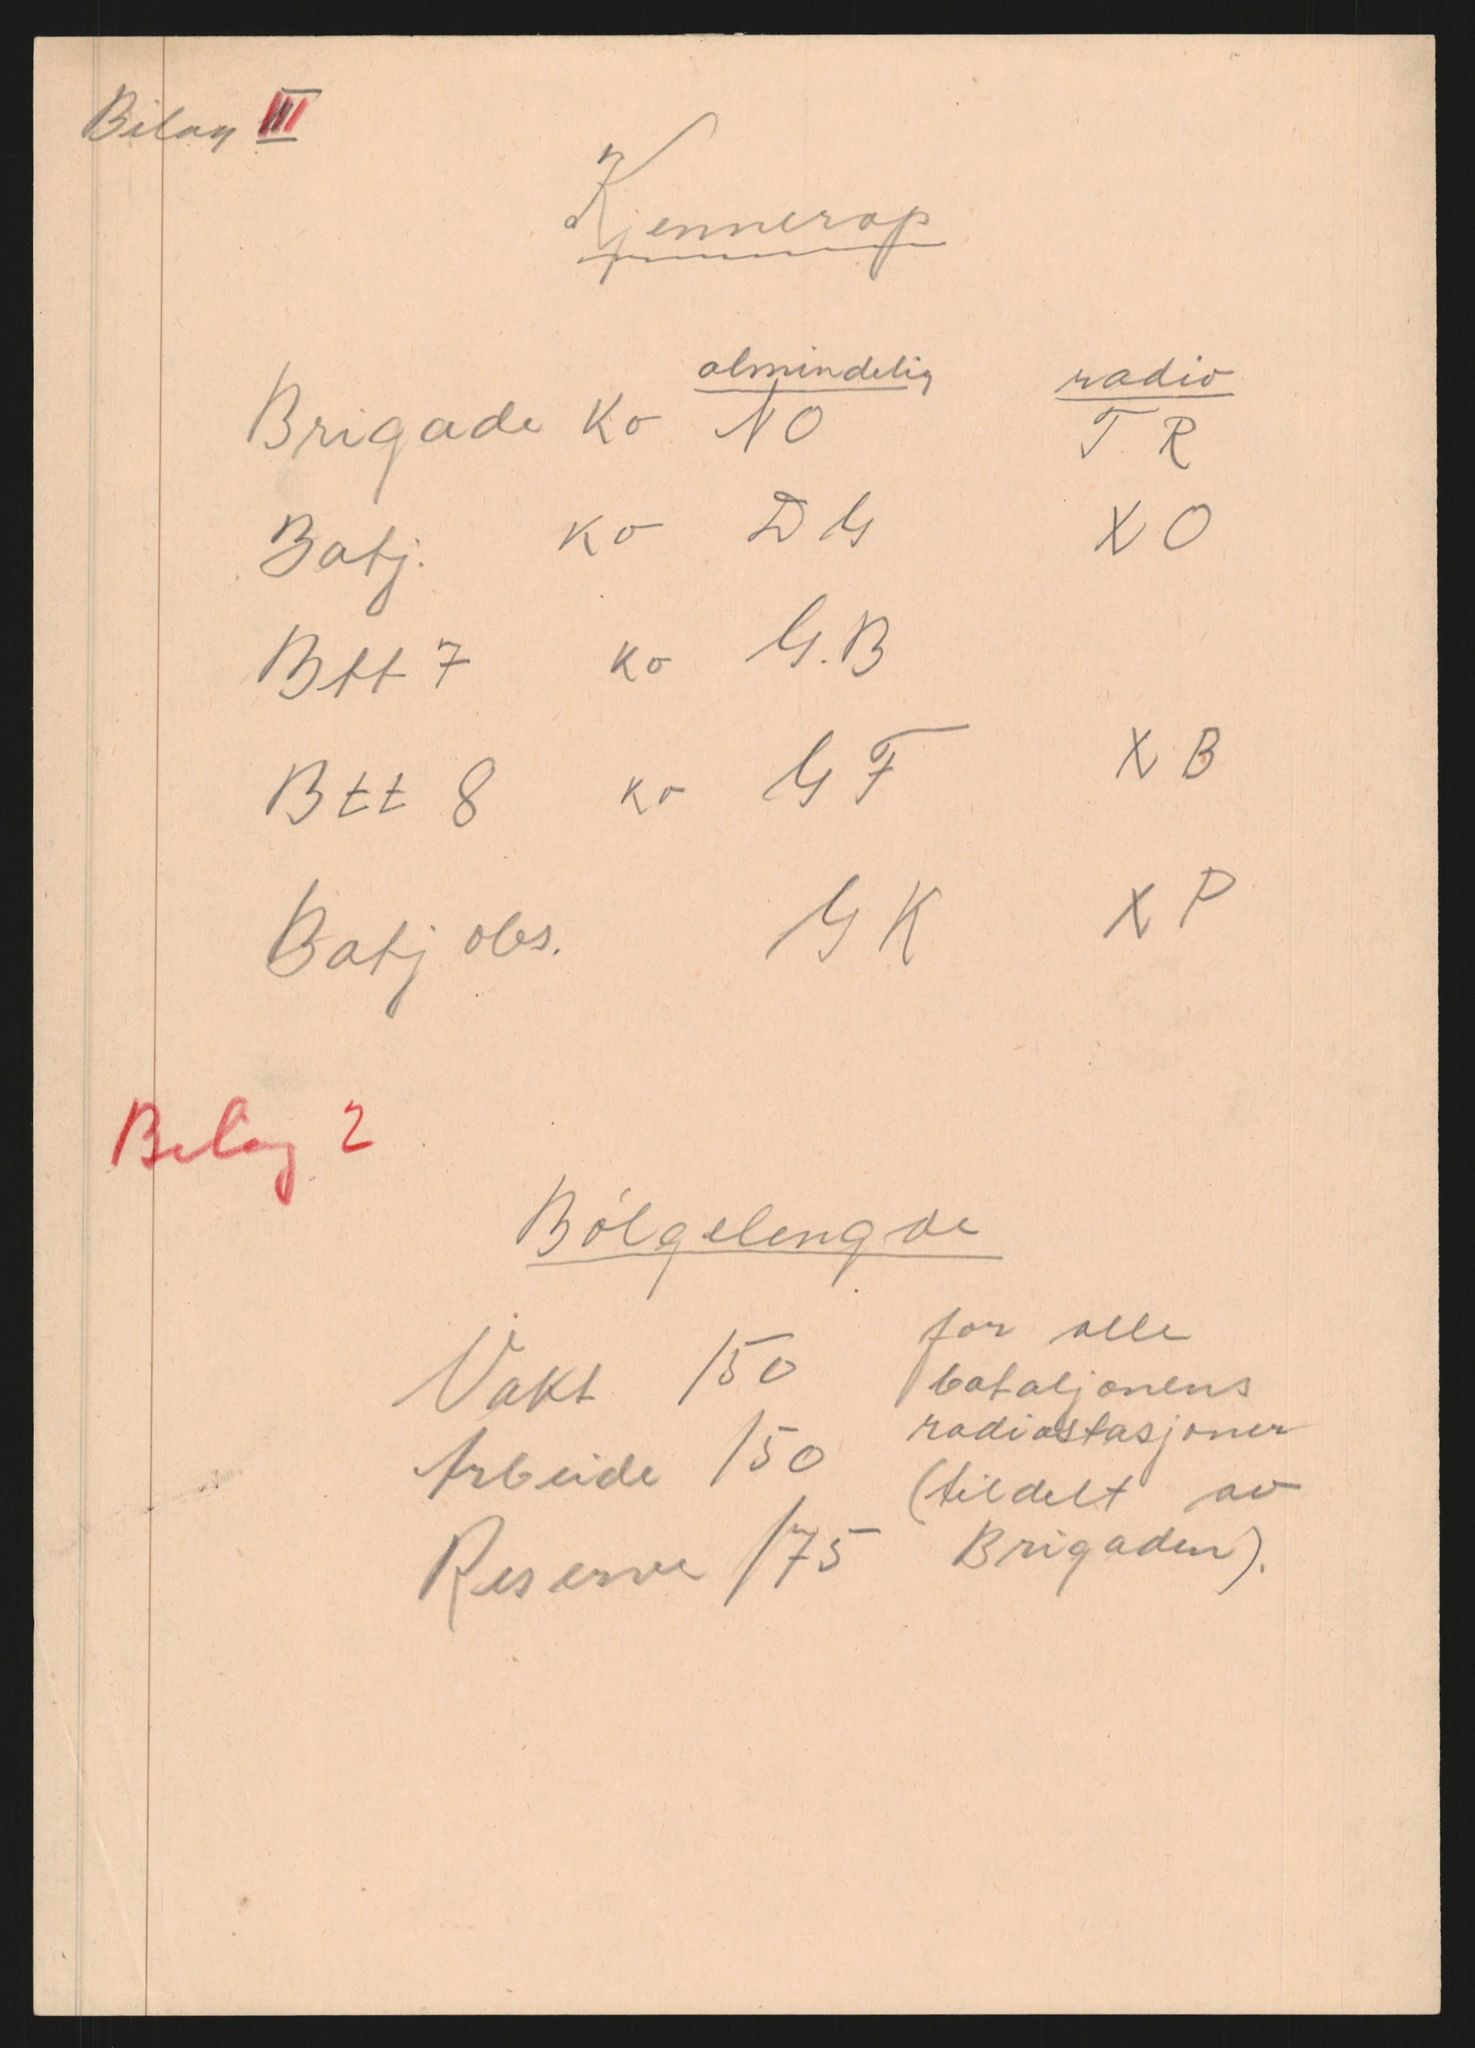 Bilag III
Kjennerop
almindelig radio
Brigade Ko NO TR
Batj. Ko DG XO
Btt 7 Ko G.B
Btt 8 Ko GF XB
Batj obs. GK XP
Bilag 2
Bólgelengde
Vakt 150
Arbeide 150
Reserve 175
for alle
bataljonens
radiostasjoner
(tildelt av
Brigaden).